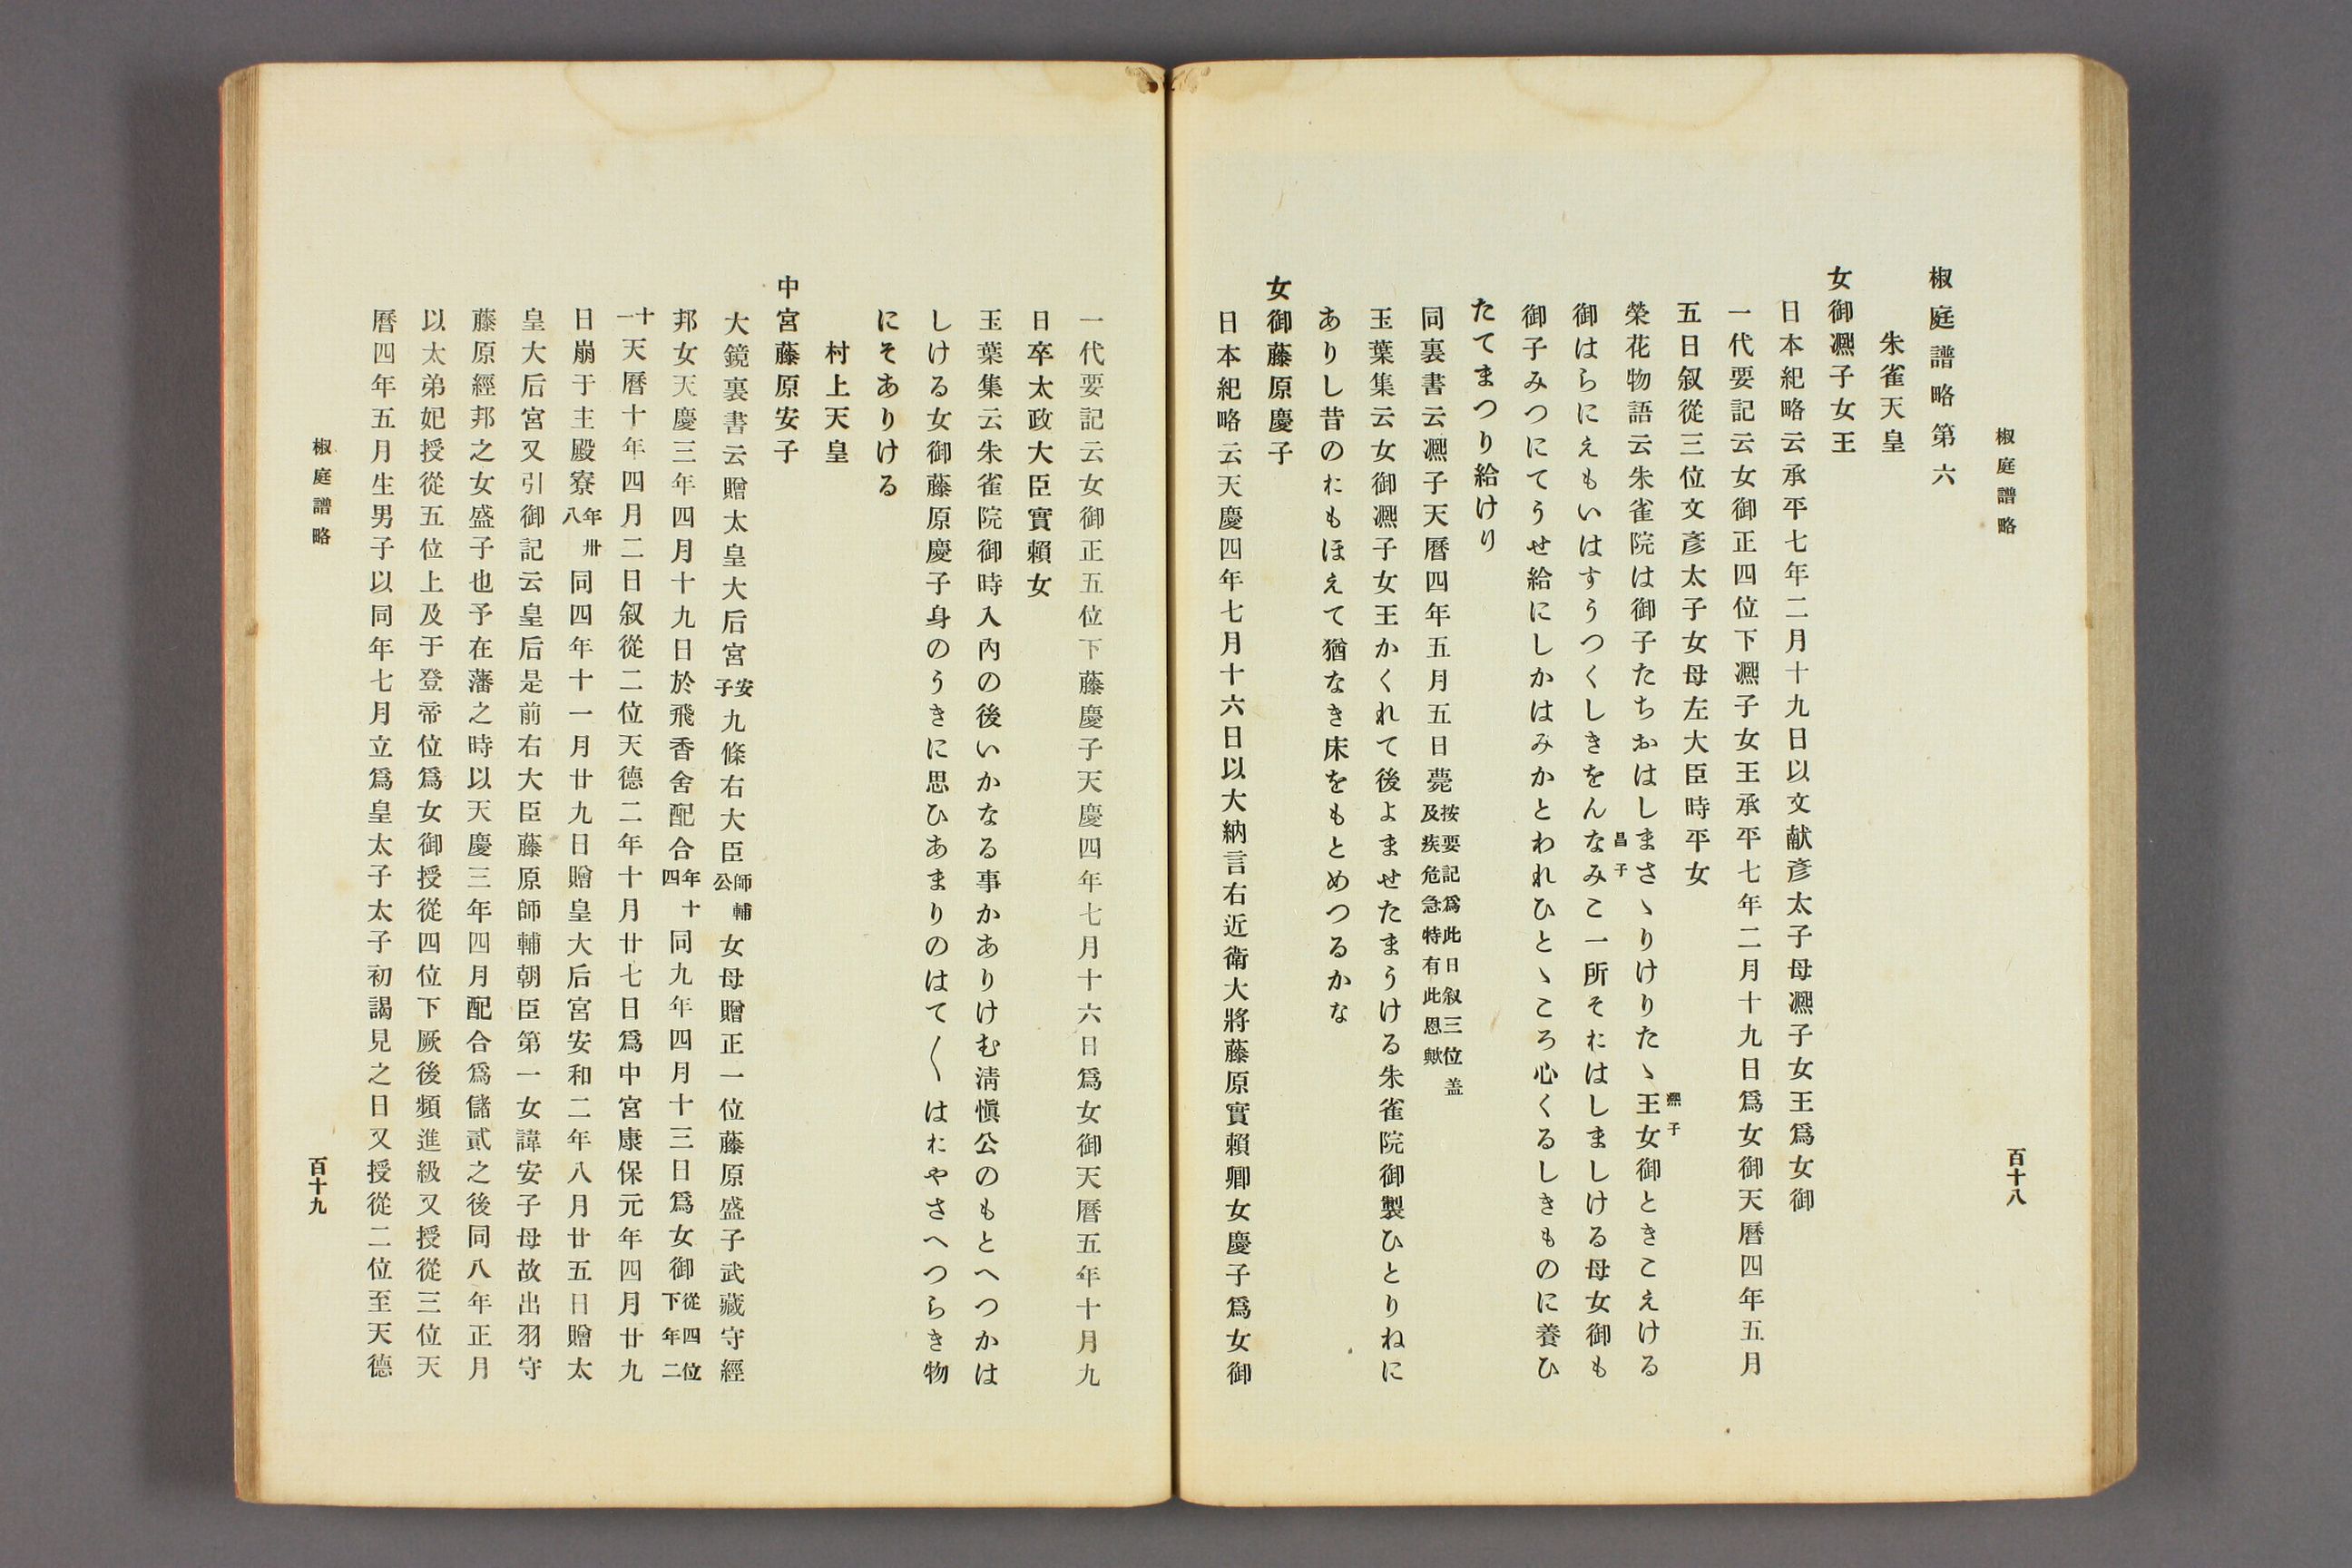 椒庭譜略
百十八
椒庭譜略第六
朱雀天皇
女御凞子女王
日本紀略云承平七年二月十九日以文献彥太子母凞子女王爲女御
一代要記云女御正四位下凞子女王承平七年二月十九日爲女御天曆四年五月
五日叙從三位文彥太子女母左大臣時平女
榮花物語云朱雀院は御子たちおはしまさゝりけりたゝ王女御ときこえける
凞子
御はらにえもいはすうつくしきをんなみこ一所そおはしましける母女御も
昌子
御子みつにてうせ給にしかはみかとわれひとゝころ心くるしきものに養ひ
たてまつり給けり
同裏書云凞子天曆四年五月五日薨按要記爲此日叙三位盖及疾危急特有此恩歟
玉葉集云女御凞子女王かくれて後よませたまうける朱雀院御製ひとりねに
ありし昔のおもほえて猶なき床をもとめつるかな
女御藤原慶子
日本紀略云天慶四年七月十六日以大納言右近衛大將藤原實賴卿女慶子爲女御
一代要記云女御正五位下藤慶子天慶四年七月十六日爲女御天曆五年十月九
日卒太政大臣實賴女
玉葉集云朱雀院御時入內の後いかなる事かありけむ淸愼公のもとへつかは
しける女御藤原慶子身のうきに思ひあまりのはて〳〵はおやさへつらき物
にそありける
村上天皇
中宮藤原安子
大鏡裏書云贈太皇大后宮安子九條右大臣師輔公女母贈正一位藤原盛子武藏守經
邦女天慶三年四月十九日於飛香舍配合年十四同九年四月十三日爲女御從四位下年二
十一天曆十年四月二日叙從二位天德二年十月廿七日爲中宮康保元年四月廿九
日崩于主殿寮年卅八同四年十一月廿九日贈皇大后宮安和二年八月廿五日贈太
皇大后宮又引御記云皇后是前右大臣藤原師輔朝臣第一女諱安子母故出羽守
藤原經邦之女盛子也予在藩之時以天慶三年四月配合爲儲貳之後同八年正月
以太弟妃授從五位上及于登帝位爲女御授從四位下厥後頻進級又授從三位天
曆四年五月生男子以同年七月立爲皇太子太子初謁見之日又授從二位至天德
椒庭譜略
百十九